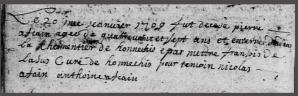 Le 20 jme Jeanvier 1709 fut decede pierre
afcain agez de quattrevint et sept ans et enterrer dans
la Chementier de honnechis epar mettre fransois de
Lasus Curé de honnechis pour temoin nicolas
afcain anthoine afcain